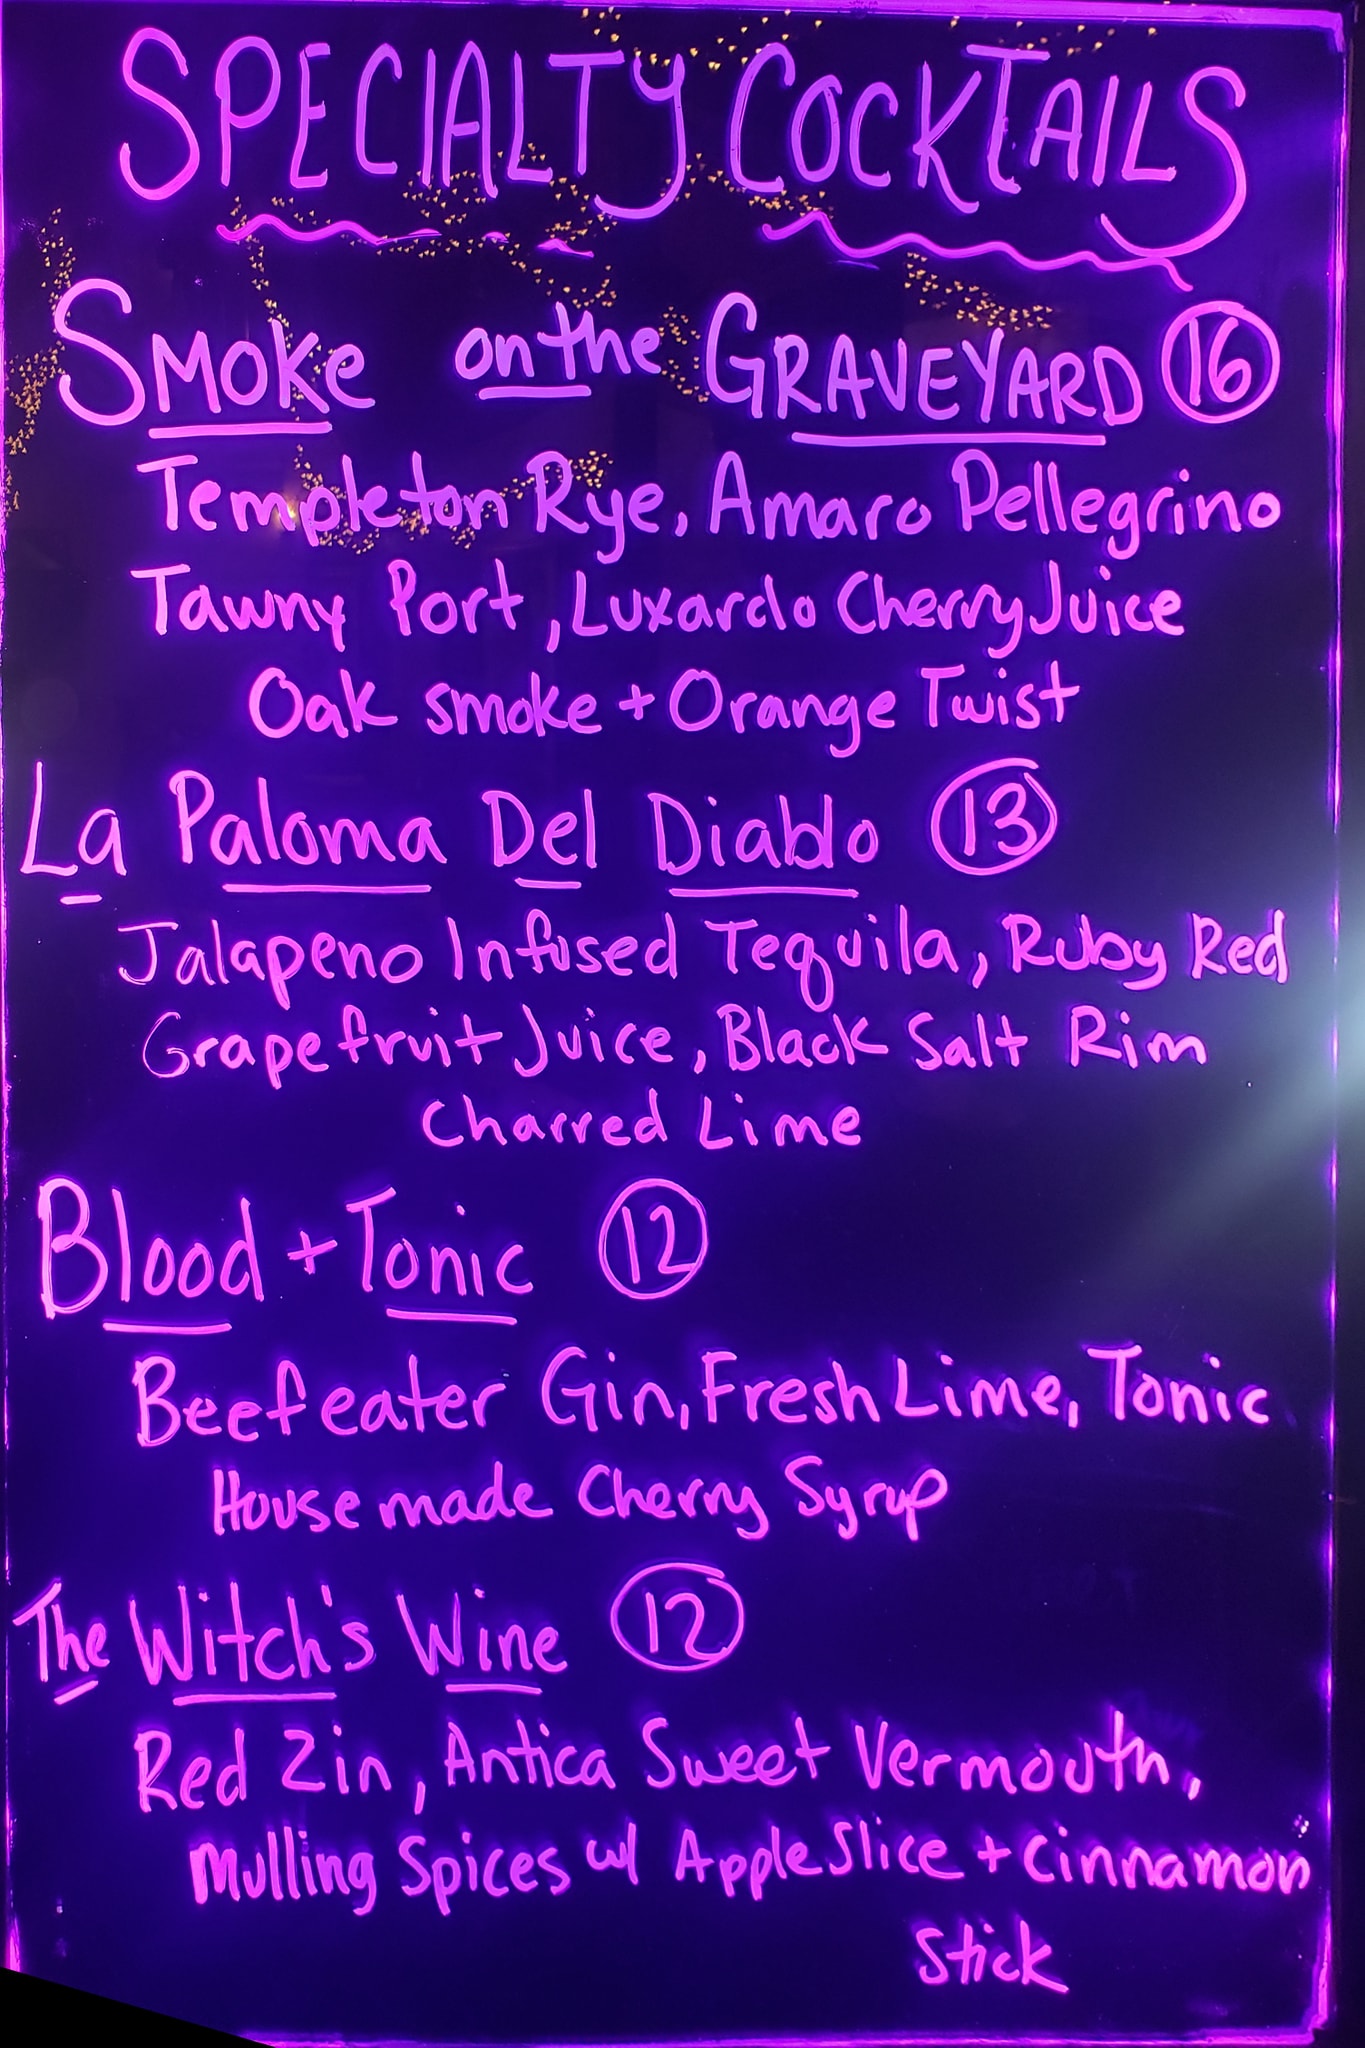 SPECIALTY COCKTAILS
SMOKe on the GRAVEYARD 16
Templeton Rye, Amaro Pellegrino
Tawny Port, Luxardo Cherry Juice
Oak smoke + Orange Twist
La Paloma Del Diablo 13
Jalapeno Infused Tequila, Ruby Red
Grapefruit Juice, Black Salt Rim
Charred Lime
Blood + Tonic 12
Beefeater Gin, Fresh Lime, Tonic
House made Cherry Syrup
The Witch's Wine 12
Red Zin, Antica Sweet Vermouth,
Mulling Spices w/ Apple Slice + Cinnamon
Stick